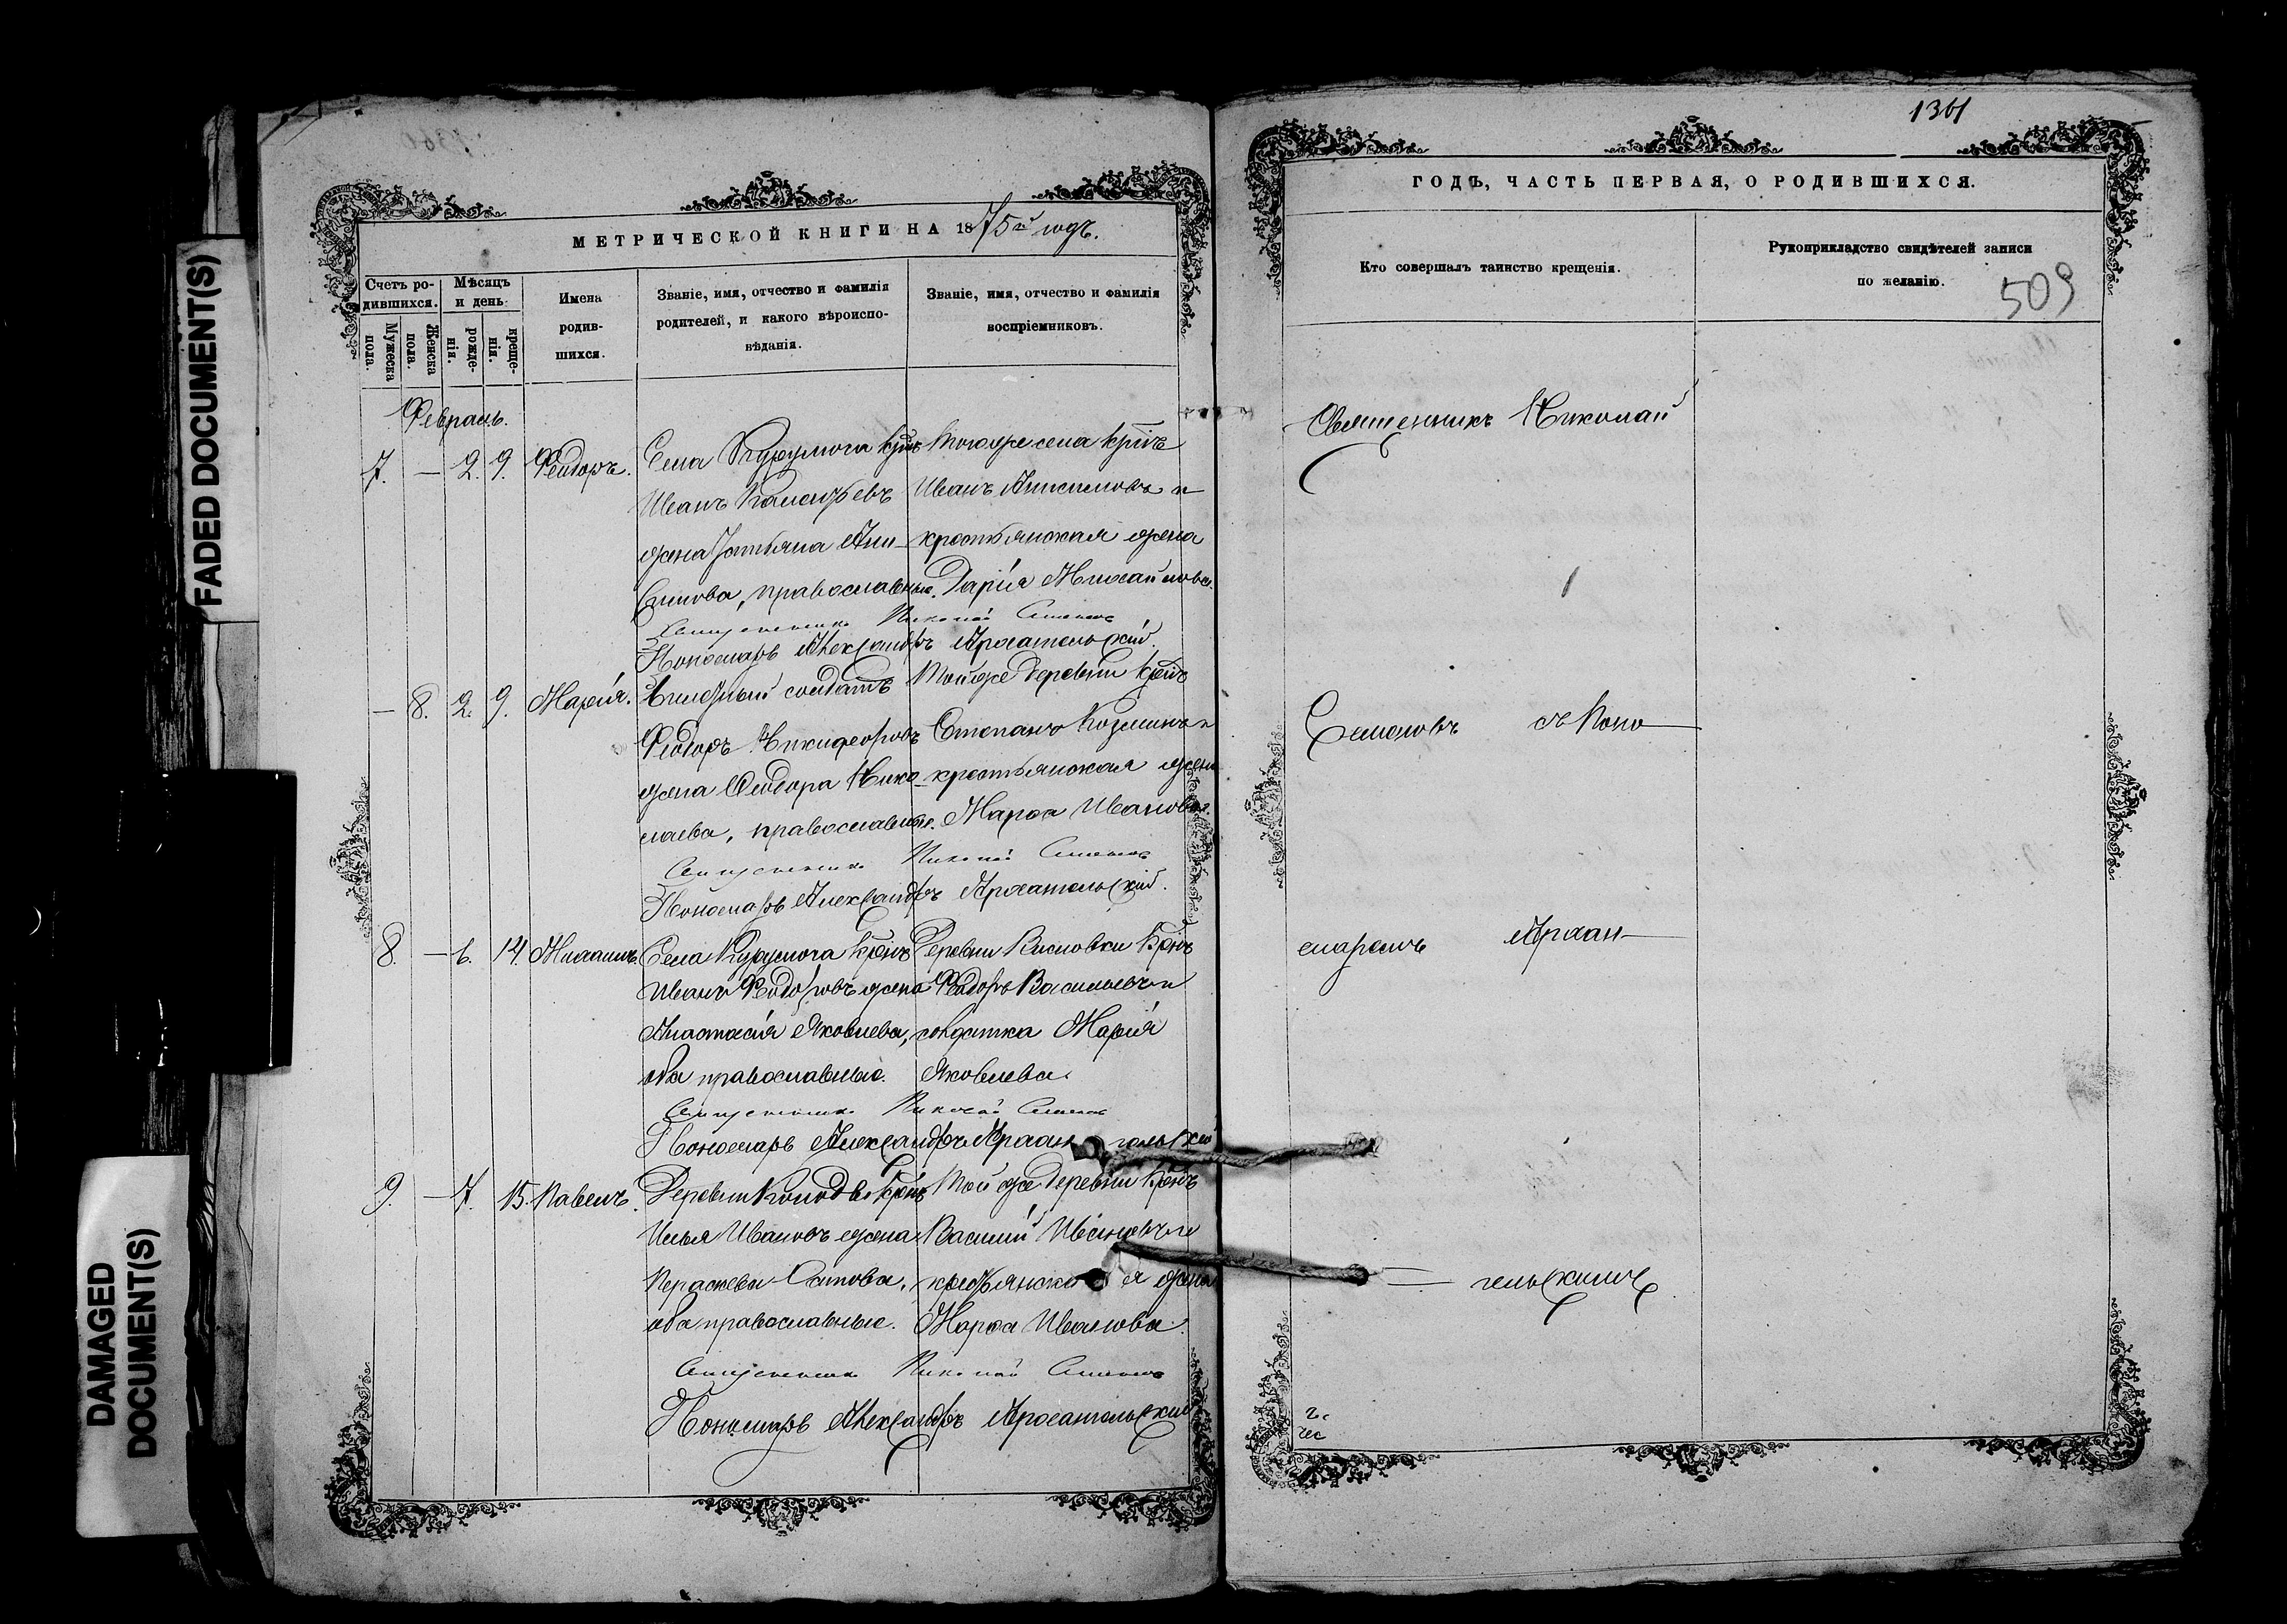 FADED DOCUMENT(S)
DAMAGED
DOCUMENT(S)
МЕТРИЧЕСКОЙ КНИГИ НА 1875й годъ.
Счетъ ро-
дившихся.
Мужеска
пола.
Женска
пола.
Мѣсяцъ
и день
рожде-
нія.
креще-
нія.
Имена
родив-
шихся.
Званіе, имя, отчество и фамилія
родителей, и какого вѣроиспо-
вѣданія.
Званіе, имя, отчество и фамилія
воспріемниковъ.
Февраль.
7. — 2. 9. Феодоръ.
Села Курумоча крнъ
Иванъ
жена Татьяна Ани-
симова, православные.
Тогоже села крнъ
Иванъ Анисимовъ и
крестьянская жена
Дарія Михайлова.
Священникъ Николай Семеновъ
Пономарь Александръ Архангельскій.
— 8. 2. 9. Марія.
солдатъ
Феодоръ Никифоровъ
жена Феодора Нико-
лаева, православные.
Тойже деревни крнъ
Степанъ Козминъ и
крестьянская жена
Марѳа Иванова.
Священникъ Николай Семеновъ
Пономарь Александръ Архангельскій.
8. — 6. 14. Михаилъ.
Села Курумоча крнъ
Иванъ Феодоровъ жена
Анастасія Яковлева,
оба православные.
Деревни Висловки крнъ
Феодоръ Васильевъ и
солдатка Марія
Яковлева.
Священникъ Николай Семеновъ
Пономарь Александръ Архангельскій
9. — 7. 15. Павелъ.
Деревни крнъ
Илья Ивановъ жена
Параскева
оба православные.
Той же деревни крнъ
Василій Ивановъ и
крестьянская жена
Марѳа Иванова.
Священникъ Николай Семеновъ
Пономарь Александръ Архангельскій
1361
ГОДЪ, ЧАСТЬ ПЕРВАЯ, О РОДИВШИХСЯ.
Кто совершалъ таинство крещенія.
Рукоприкладство свидѣтелей записи
по желанію.
509
Священникъ Николай
Семеновъ съ Поно-
маремъ Архан-
гельскимъ